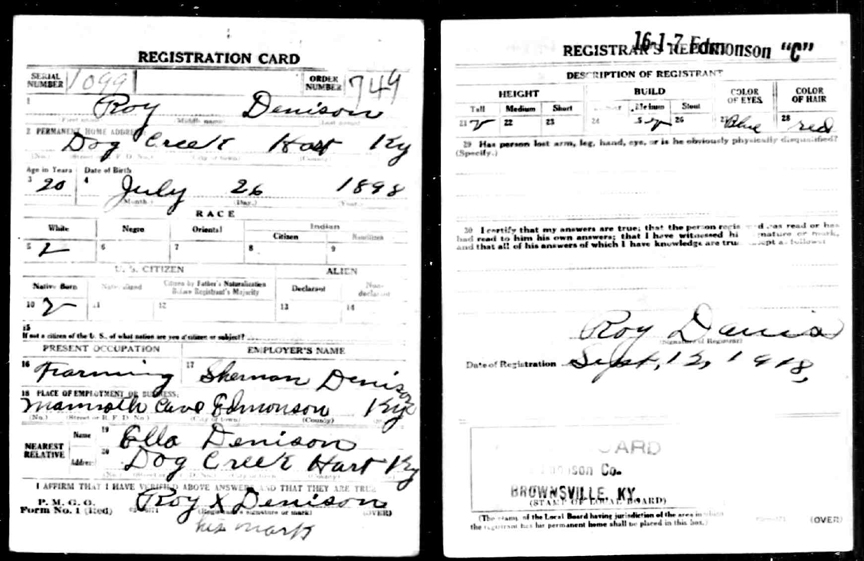 REGISTRATION CARD
SERIAL NUMBER 1099 ORDER NUMBER 749
1 Roy Denison
2 PERMANENT HOME ADDRESS
Dog Creek Hart Ky
Age in Years Date of Birth
3 20 4 July 26 1898
(Month) (Day) (Year)
RACE
White Negro Oriental Indian
Citizen
5 6 7 8 9
U. S. CITIZEN ALIEN
Native Born Naturalized Citizen by Father's Naturalization Before Registrant's Majority Declarant Non-declarant
10 11 12 13 14
15
If not a citizen of the U. S., of what nation are you a citizen or subject?
PRESENT OCCUPATION EMPLOYER'S NAME
16 Farming 17 Sherman Denison
18 PLACE OF EMPLOYMENT OR BUSINESS:
Mammoth Cave Edmonson Ky
(No.) (Street or R. F. D. No.) (City or town) (County)
NEAREST RELATIVE Name 19 Ella Denison
Address 20 Dog Creek Hart Ky
I AFFIRM THAT I HAVE VERIFIED ABOVE ANSWERS AND THAT THEY ARE TRUE
P. M. G. O.
Form No. 1 (Red) Roy X Denison
(Registrant's signature or mark) (OVER)
his mark
16-1-7 Edmonson "C"
REGISTRAR'S REPORT
DESCRIPTION OF REGISTRANT
HEIGHT BUILD COLOR OF EYES COLOR OF HAIR
Tall Medium Short Medium Stout
21 22 23 24 26 27 Blue 28 red
29 Has person lost arm, leg, hand, eye, or is he obviously physically disqualified?
(Specify.)
30 I certify that my answers are true; that the person has read or has
had read to him his own answers; that I have witnessed or mark,
and that all of his answers of which I have knowledge are as follows:
Roy Davis
(Signature of Registrar)
Date of Registration Sept, 12, 1918,
ARD
Co.
BROWNSVILLE, KY.
(STAMP OF LOCAL BOARD)
(The stamp of the Local Board having jurisdiction of the area in which
the registrant has his permanent home shall be placed in this box.)
(OVER)